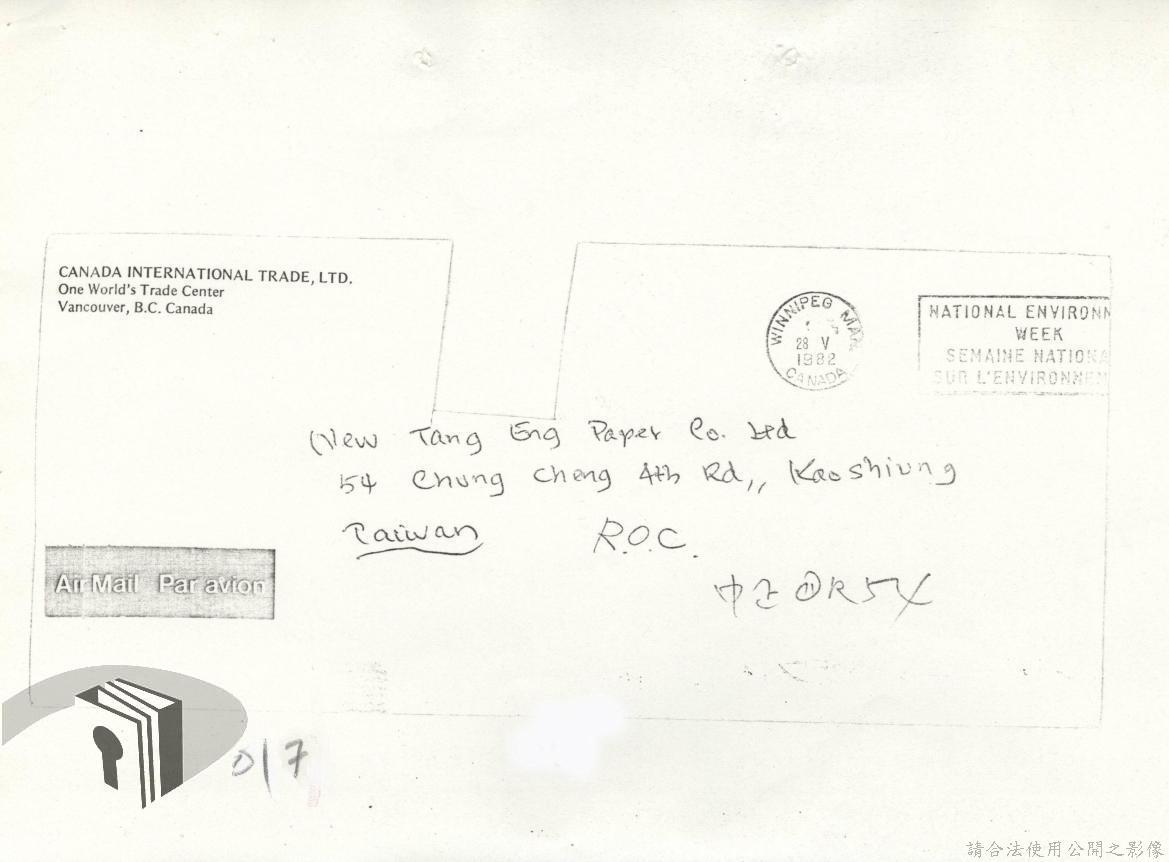 CANADA INTERNATIONAL TRADE, LTD.
One World's Trade Center
Vancouver, B.C. Canada
WINNIPEG MAN.
28 V
1982
CANADA
NATIONAL ENVIRONM
WEEK
SEMAINE NATIONA
SUR L'ENVIRONNEM
New Tang Eng Paper Co. Ltd
54 Chung Cheng 4th Rd,, Kaoshiung
Taiwan R.O.C.
Air Mail Par avion
中正④R54
017
請合法使用公開之影像